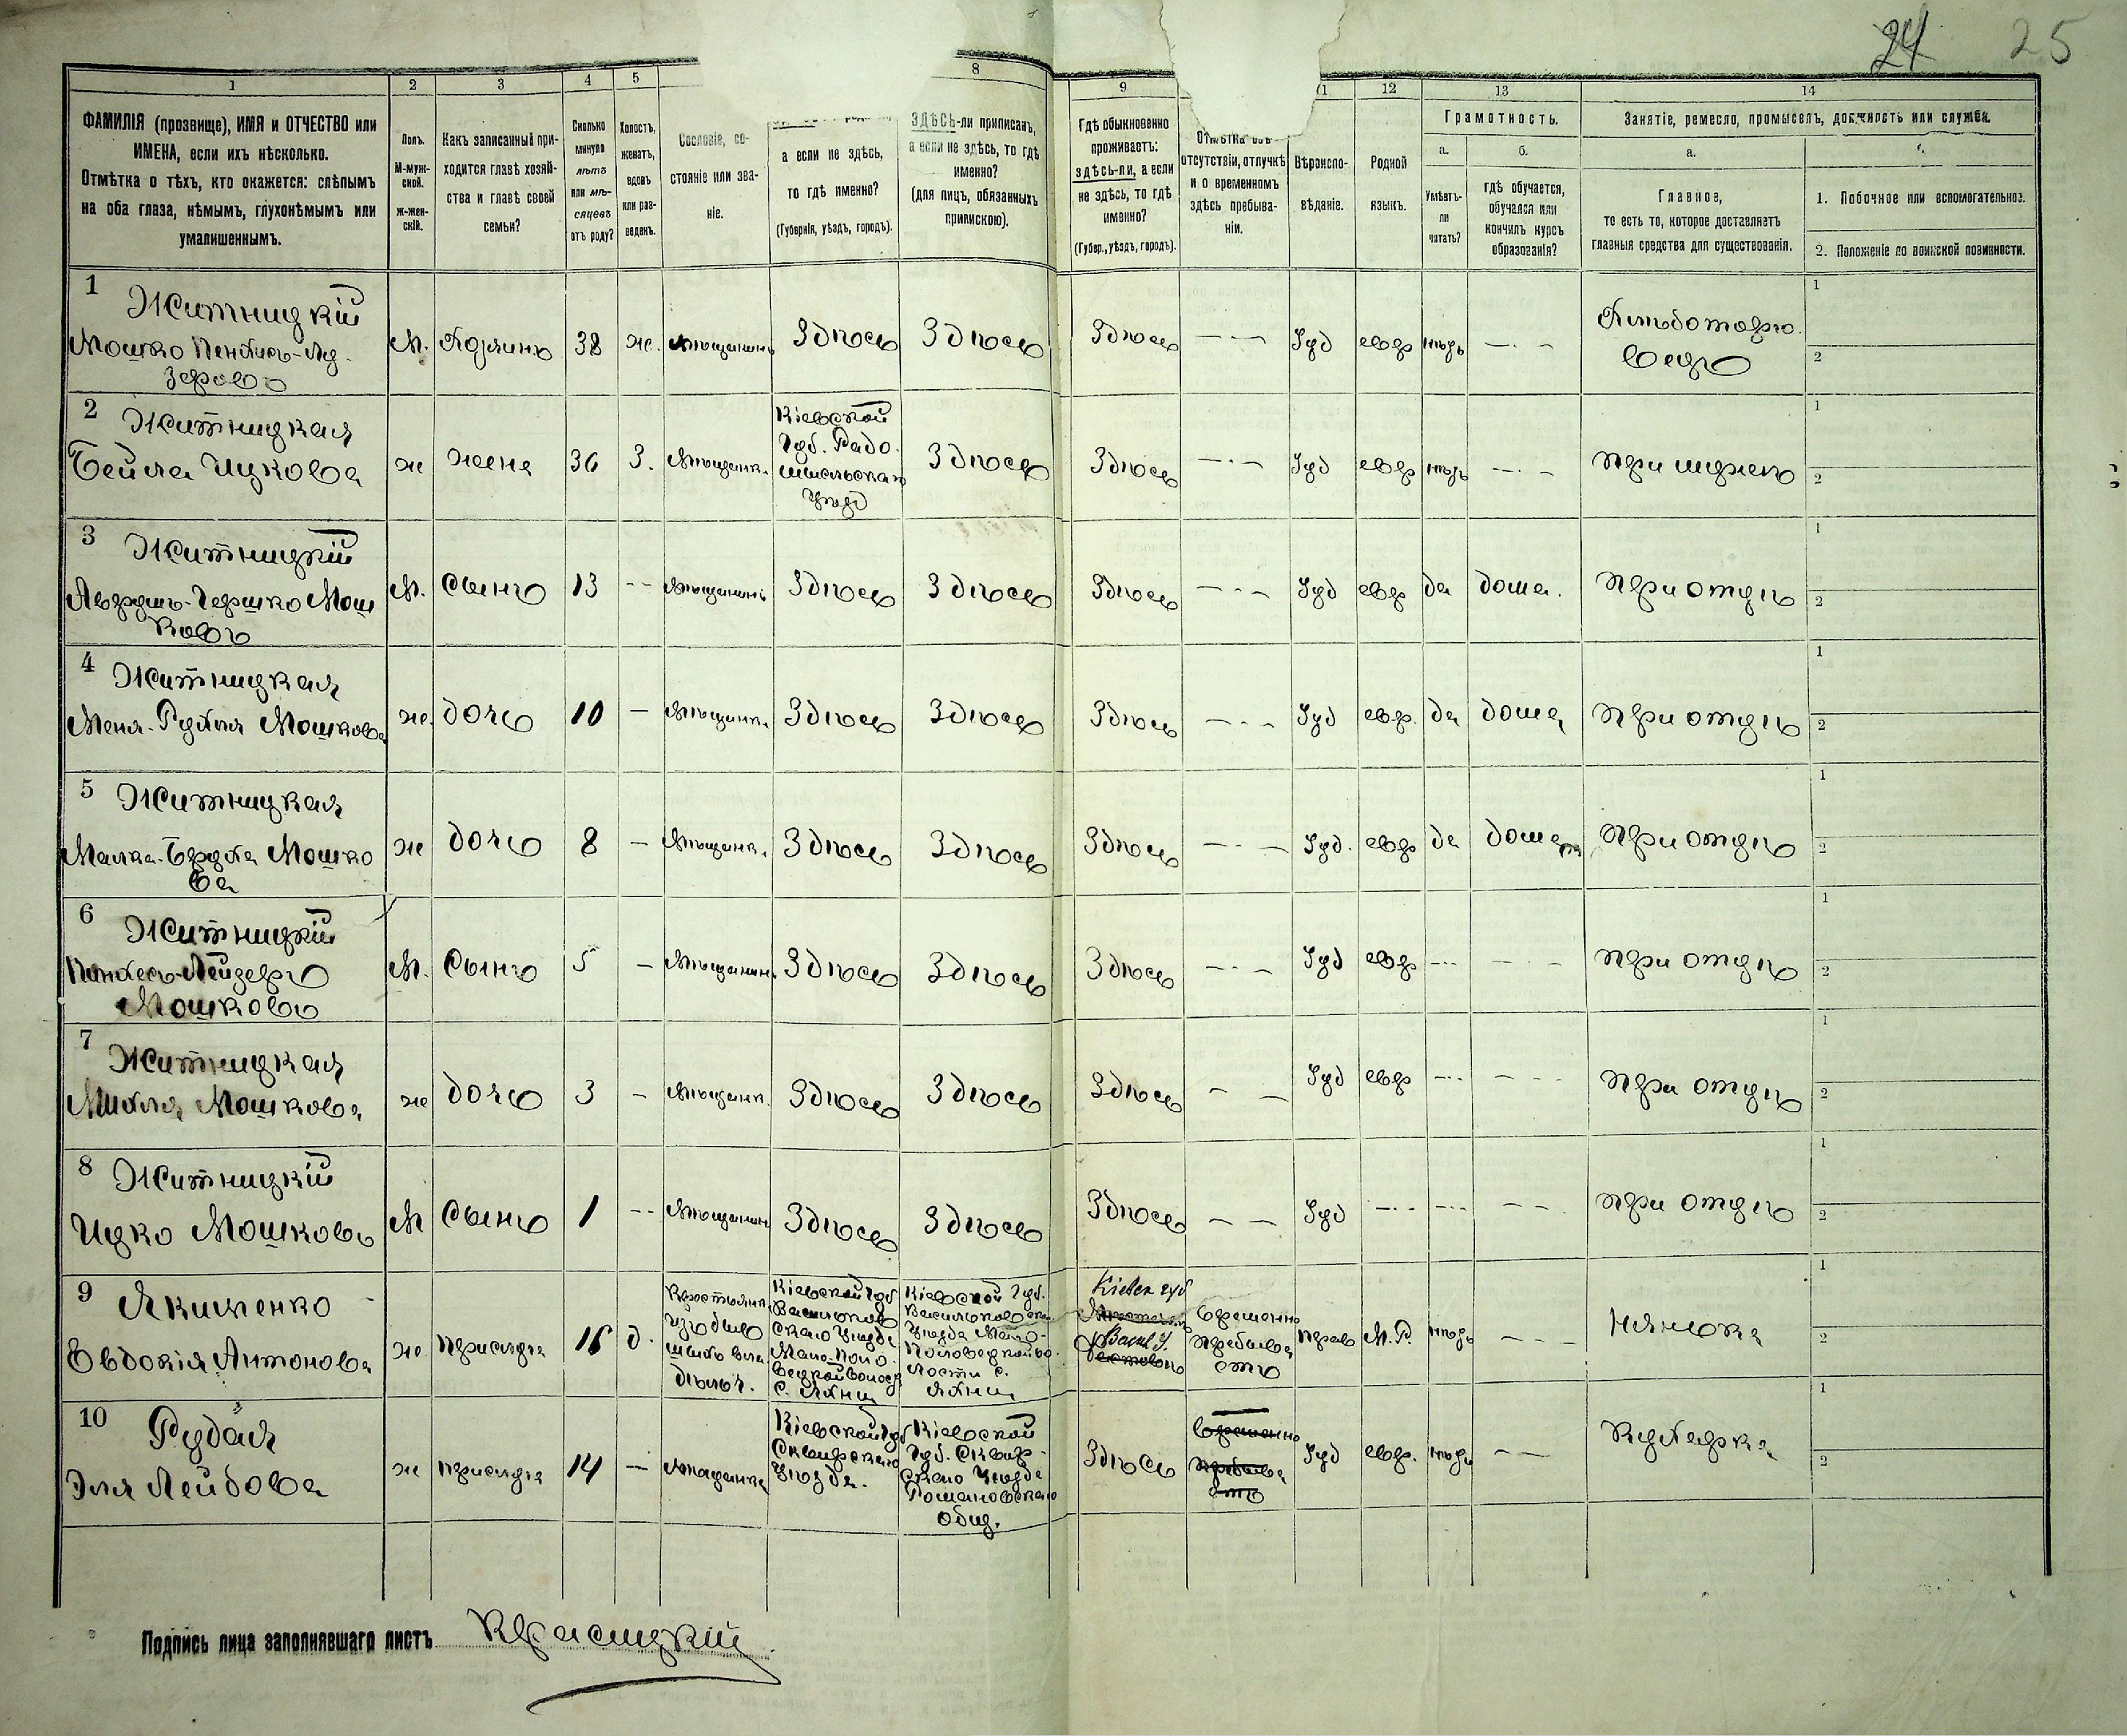 24 25
1 2 3 4 5 8 9 11 12 13 14
ФАМИЛІЯ (прозвище), ИМЯ и ОТЧЕСТВО или
ИМЕНА, если ихъ нѣсколько.
Отмѣтка о тѣхъ, кто окажется: слѣпымъ
на оба глаза, нѣмымъ, глухонѣмымъ или
умалишеннымъ.
Полъ.
М-муж-
ской.
ж-жен-
скій.
Какъ записанный при-
ходится главѣ хозяй-
ства и главѣ своей
семьи?
Сколько
минуло
лѣтъ
или мѣ-
сяцевъ
отъ роду?
Холостъ,
женатъ,
вдовъ
или раз-
веденъ.
Сословіе, со-
стояніе или зва-
ніе.
а если не здѣсь,
то гдѣ именно?
(Губернія, уѣздъ, городъ).
ЗДѢСЬ-ли приписанъ,
а если не здѣсь, то гдѣ
именно?
(для лицъ, обязанныхъ
припискою).
Гдѣ обыкновенно
проживаетъ:
здѣсь-ли, а если
не здѣсь, то гдѣ
именно?
(Губер., уѣздъ, городъ).
Отмѣтка объ
отсутствіи, отлучкѣ
и о временномъ
здѣсь пребыва-
ніи.
Вѣроиспо-
вѣданіе.
Родной
языкъ.
Грамотность.
а.
Умѣетъ-
ли
читать?
б.
гдѣ обучается,
обучался или
кончилъ курсъ
образованія?
Занятіе, ремесло, промыселъ, должность или служба.
а.
Главное,
то есть то, которое доставляетъ
главныя средства для существованія.
б.
1. Побочное или вспомогательное.
2. Положеніе по воинской повинности.
1 Житницкій
Мошко Пенхасъ-Лей
зеровъ
М. Хозяинъ 38 ж. мѣщанинъ Здѣсь Здѣсь Здѣсь — - Іуд евр нѣтъ — . - Хлѣботорго
вецъ 1 2
2 Житницкая
Бейла Ицкова
ж жена 36 З. Мѣщанк. Кіевской
Губ. Радо
мысльскаго
Уѣзд
Здѣсь Здѣсь — . - Іуд евр нѣтъ — . - при мужѣ 1 2
3 Житницкій
Аврумъ-Гершко Мош
ковъ
М. Сынъ 13 - - Мѣщанинъ Здѣсь Здѣсь Здѣсь — . - Іуд евр да дома. при отцѣ 1 2
4 Житницкая
Меня-Рухля Мошкова
ж. дочь 10 — Мѣщанк. Здѣсь Здѣсь Здѣсь — . - Іуд евр. да дома при отцѣ 1 2
5 Житницкая
Малка-Бруха Мошко
ва
ж дочь 8 — Мѣщанк. Здѣсь Здѣсь Здѣсь — . - Іуд. евр да дома при отцѣ 1 2
6 Житницкій
Пинхесъ-Лейзеръ
Мошковъ
М. Сынъ 5 — Мѣщанин. Здѣсь Здѣсь Здѣсь — . - Іуд евр -.. - . - при отцѣ 1 2
7 Житницкая
Михля Мошкова
ж дочь 3 — Мѣщанк. Здѣсь Здѣсь Здѣсь - — Іуд евр -.. - - - при отцѣ 1 2
8 Житницкій
Ицко Мошковъ
М Сынъ 1 - - Мѣщанин Здѣсь Здѣсь Здѣсь — — Іуд -.. -.. - - при отцѣ 1 2
9 Якименко
Евдокія Антонова
ж. прислуга 16 д. Крестьянк.
изъ быв
шихъ вла
дѣльч.
Кіевской Губ
Васильков
скаго Уѣзда
Мало-Поло
вецкой волост
с. Яхны
Кіевской Губ.
Васильковскаго
Уѣзда Мало-
Половецкой во
лости с.
Яхны
Кіевск губ
Васил У.
временно
пребыва
етъ
прав М.Р. нѣтъ - - - нянька 1 2
10 Рудая
Эля Лейбова
ж прислуга 14 — Мѣщанка Кіевской Губ
Сквирскаго
Уѣзда.
Кіевской
Губ. Сквир-
скаго Уѣзда
Романовскаго
общ.
Здѣсь временно
пребыва
етъ
Іуд евр. нѣтъ - — Кухарка 1 2
Подпись лица заполнявшаго листъ Красицкій